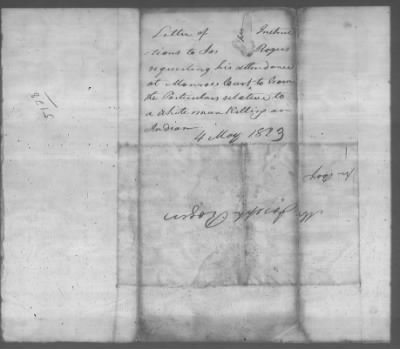 Letter of Instruc
tions to Jos Rogers
requesting his attendance
at Monroe Court, to learn
the Particulars relative to
a white man Killing an
Indian
4 May 1823
Mr Joseph Rogers